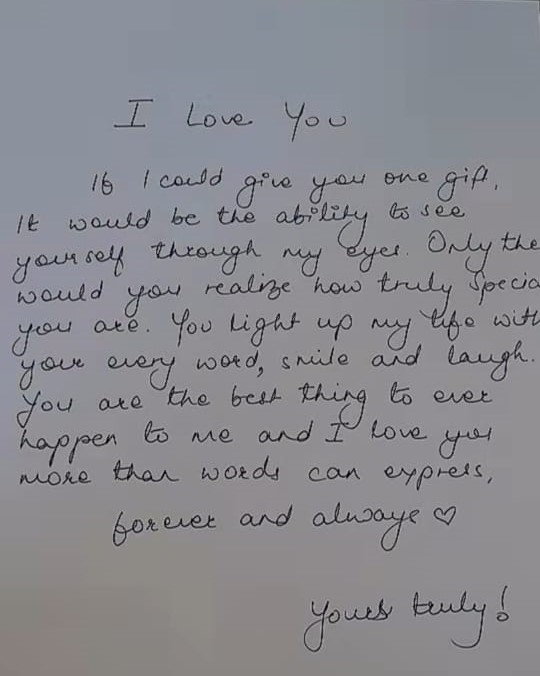 I Love You
If I could give you one gift,
It would be the ability to see
yourself through my eyes. Only the
would you realize how truly specia
you are. You light up my life with
your every word, smile and laugh.
You are the best thing to ever
happen to me and I love you
more than words can express,
forever and always ♡
Yours truly!